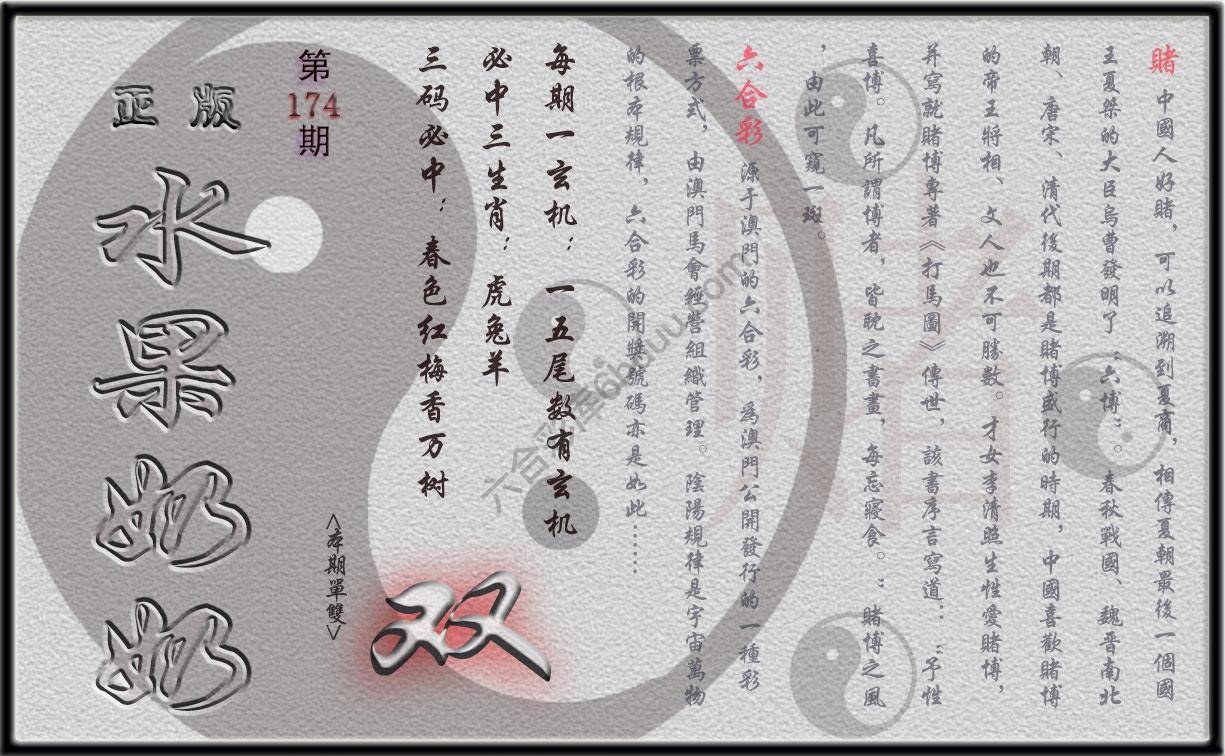 賭 中國人好賭，可以追溯到夏商，相傳夏朝最後一個國
王夏桀的大臣烏曹發明了“六博”。春秋戰國、魏晋南北
朝、唐宋、清代後期都是賭博盛行的時期，中國喜歡賭博
的帝王將相、文人也不可勝數。才女李清照生性愛賭博，
并寫就賭博專著《打馬圖》傳世，該書序言寫道：“予性
喜博。凡所謂博者，皆耽之晝畫，每忘寢食。”賭博之風
，由此可窺一斑。
六合彩 源于澳門的六合彩，爲澳門公開發行的一種彩
票方式，由澳門馬會經營組織管理。陰陽規律是宇宙萬物
的根本規律，六合彩的開獎號碼亦是如此……
每期一玄机：一五尾数有玄机
必中三生肖：虎兔羊
三码必中：春色红梅香万树
<本期單雙>
双
第
174
期
正版
水果奶奶
六合彩库6hduu.com